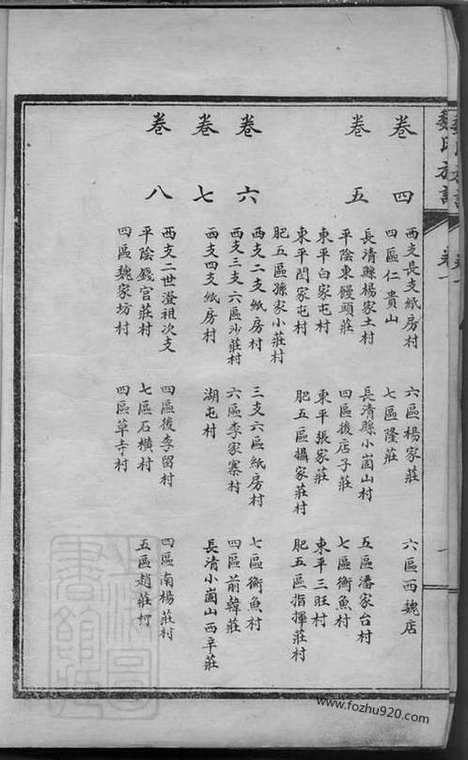 魏氏族譜
卷一
卷四
西支長支紙房村 六區楊家莊 六區西魏店
四區仁貴山 七區隆莊
卷五
長清縣楊家土村 長清縣小崮山村 五區潘家台村
平陰東饅頭莊 四區後店子莊 七區衡魚村
東平白家屯村 東平張家莊 東平三旺村
東平閆家屯村 肥五區攝家莊村 肥五區指揮莊村
肥五區孫家小莊村
卷六
西支二支紙房村 三支六區紙房村 七區衡魚村
西支三支六區沙莊村 六區李家寨村 四區前韓莊
卷七
西支四支紙房村 湖屯村 長清小崮山西辛莊
卷八
西支二世澄祖次支 四區後李留村 四區南楊莊村
平陰錢官莊村 七區石橫村 五區趙莊村
四區魏家坊村 四區草寺村
www.fozhu920.com